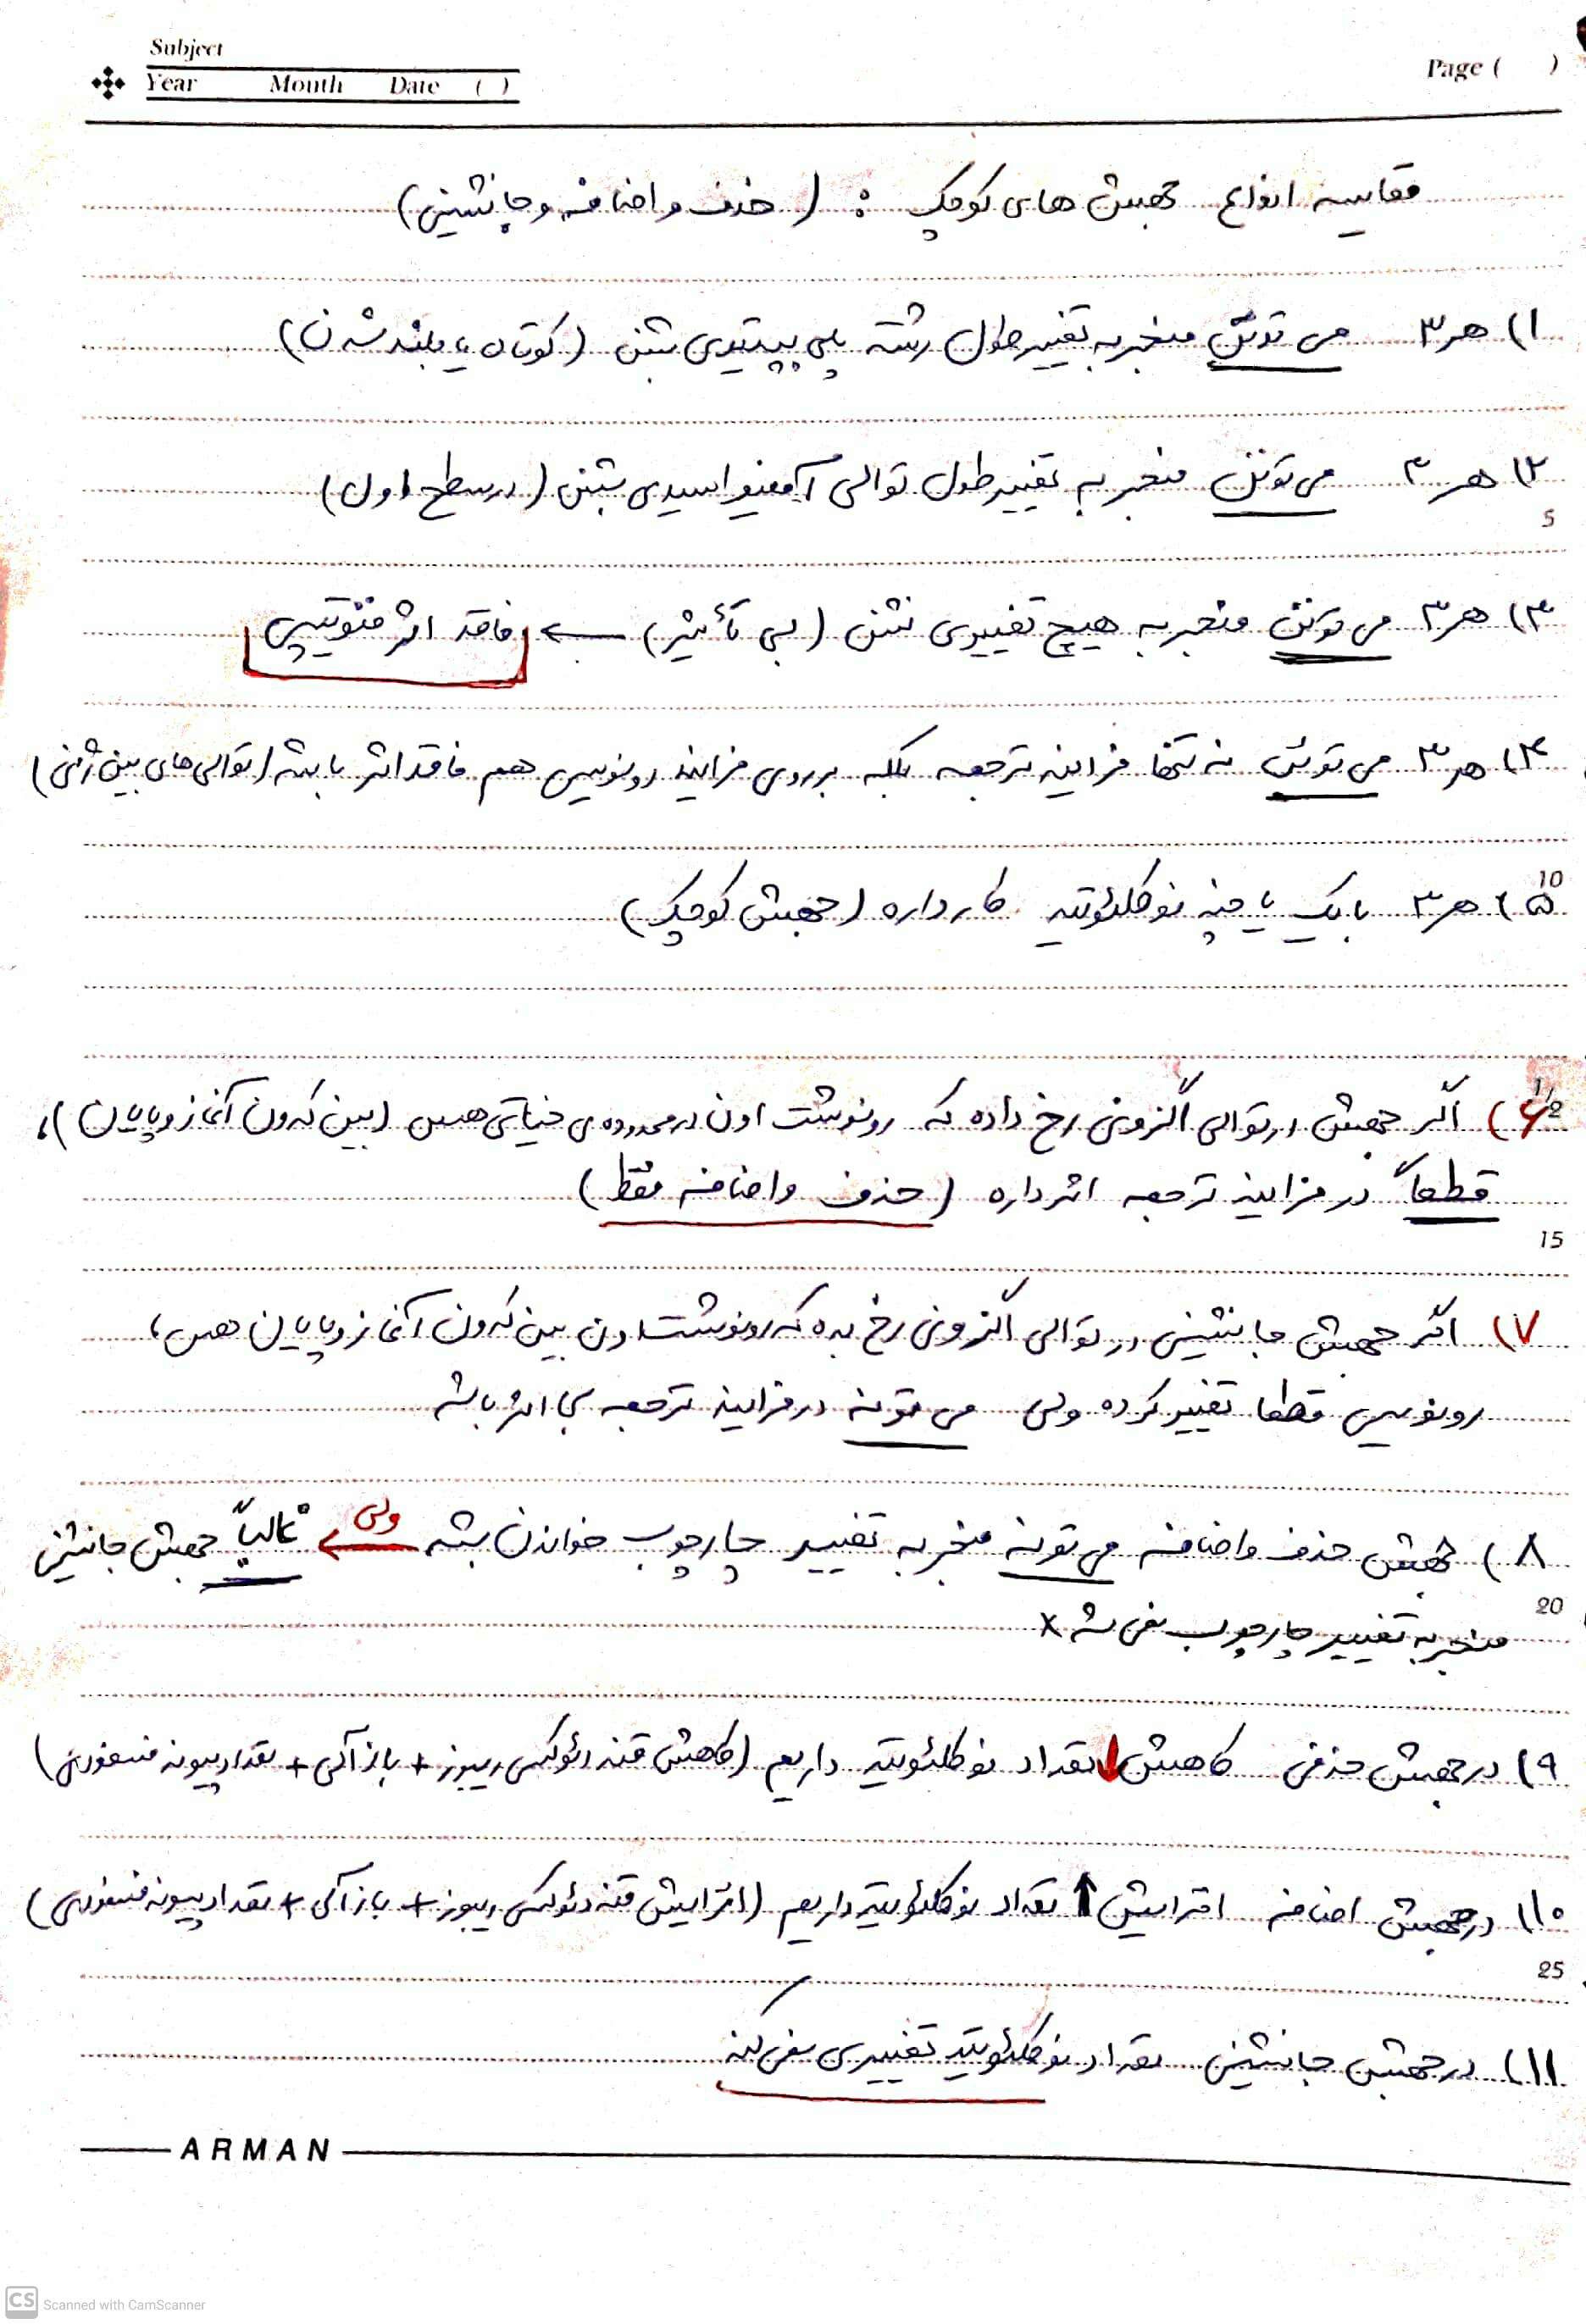 Subject
Year Month Date ( )
Page ( )
مقایسه انواع جهش های کوچک : (حذف و اضافه و جانشینی)
۱) هر ۳ می تونن منجر به تغییر طول رشته پلی پپتیدی بشن (کوتاه یا بلند شدن)
۲) هر ۳ می تونن منجر به تغییر طول توالی آمینو اسیدی بشن (در سطح اول)
5
۳) هر ۳ می تونن منجر به هیچ تغییری نشن (بی تأثیر) ← فاقد اثر فنوتیپی
۴) هر ۳ می تونن نه تنها فرایند ترجمه بلکه بر روی فرایند رونویسی هم فاقد اثر باشه (توالی های بین ژنی)
10
۵) هر ۳ با یک یا چند نوکلئوتید کار داره (جهش کوچک)
۶) اگر جهش در توالی اگزونی رخ داده که رونوشت اون در محدوده ی خیاتی هس (بین کدون آغاز و پایان)،
قطعاً در فرایند ترجمه اثر داره (حذف و اضافه فقط)
15
۷) اگر جهش جانشینی در توالی اگزونی رخ بده که رونوشت اون بین کدون آغاز و پایان هس،
رونویسی قطعا تغییر کرده ولی می تونه در فرایند ترجمه بی اثر باشه
۸) جهش حذف و اضافه می تونه منجر به تغییر چارچوب خواندن بشه ولی ← غالباً جهش جانشینی
20
منجر به تغییر چارچوب نمی شه x
۹) در جهش حذفی کاهش ↓ تعداد نوکلئوتید داریم (کاهش قند دئوکسی ریبوز + باز آلی + تعداد پیوند فسفودی)
۱۰) در جهش اضافه افزایش ↑ تعداد نوکلئوتید داریم (افزایش قند دئوکسی ریبوز + باز آلی + تعداد پیوند فسفودی)
25
۱۱) در جهش جانشینی تعداد نوکلئوتید تغییری نمی کنه
ARMAN
CS Scanned with CamScanner